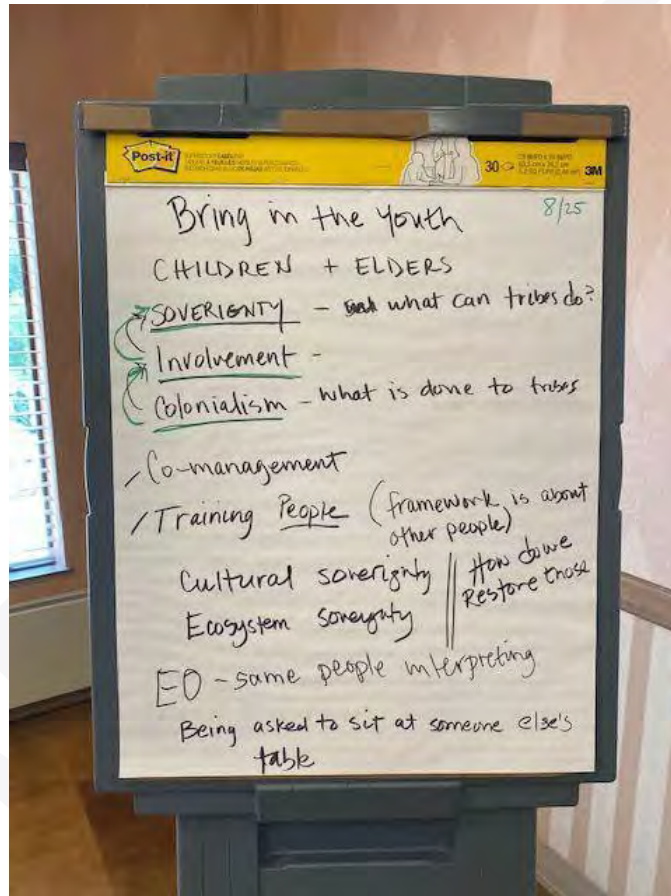 Post-it
30
3M
8/25
Bring in the Youth
CHILDREN + ELDERS
SOVERIGNTY - what can tribes do?
Involvement -
Colonialism - What is done to tribes
/ Co-management
/ Training People (framework is about
other people)
Cultural soverignty
Ecosystem
How do we
Restore those
EO - same people interpreting
Being asked to sit at someone else's
table